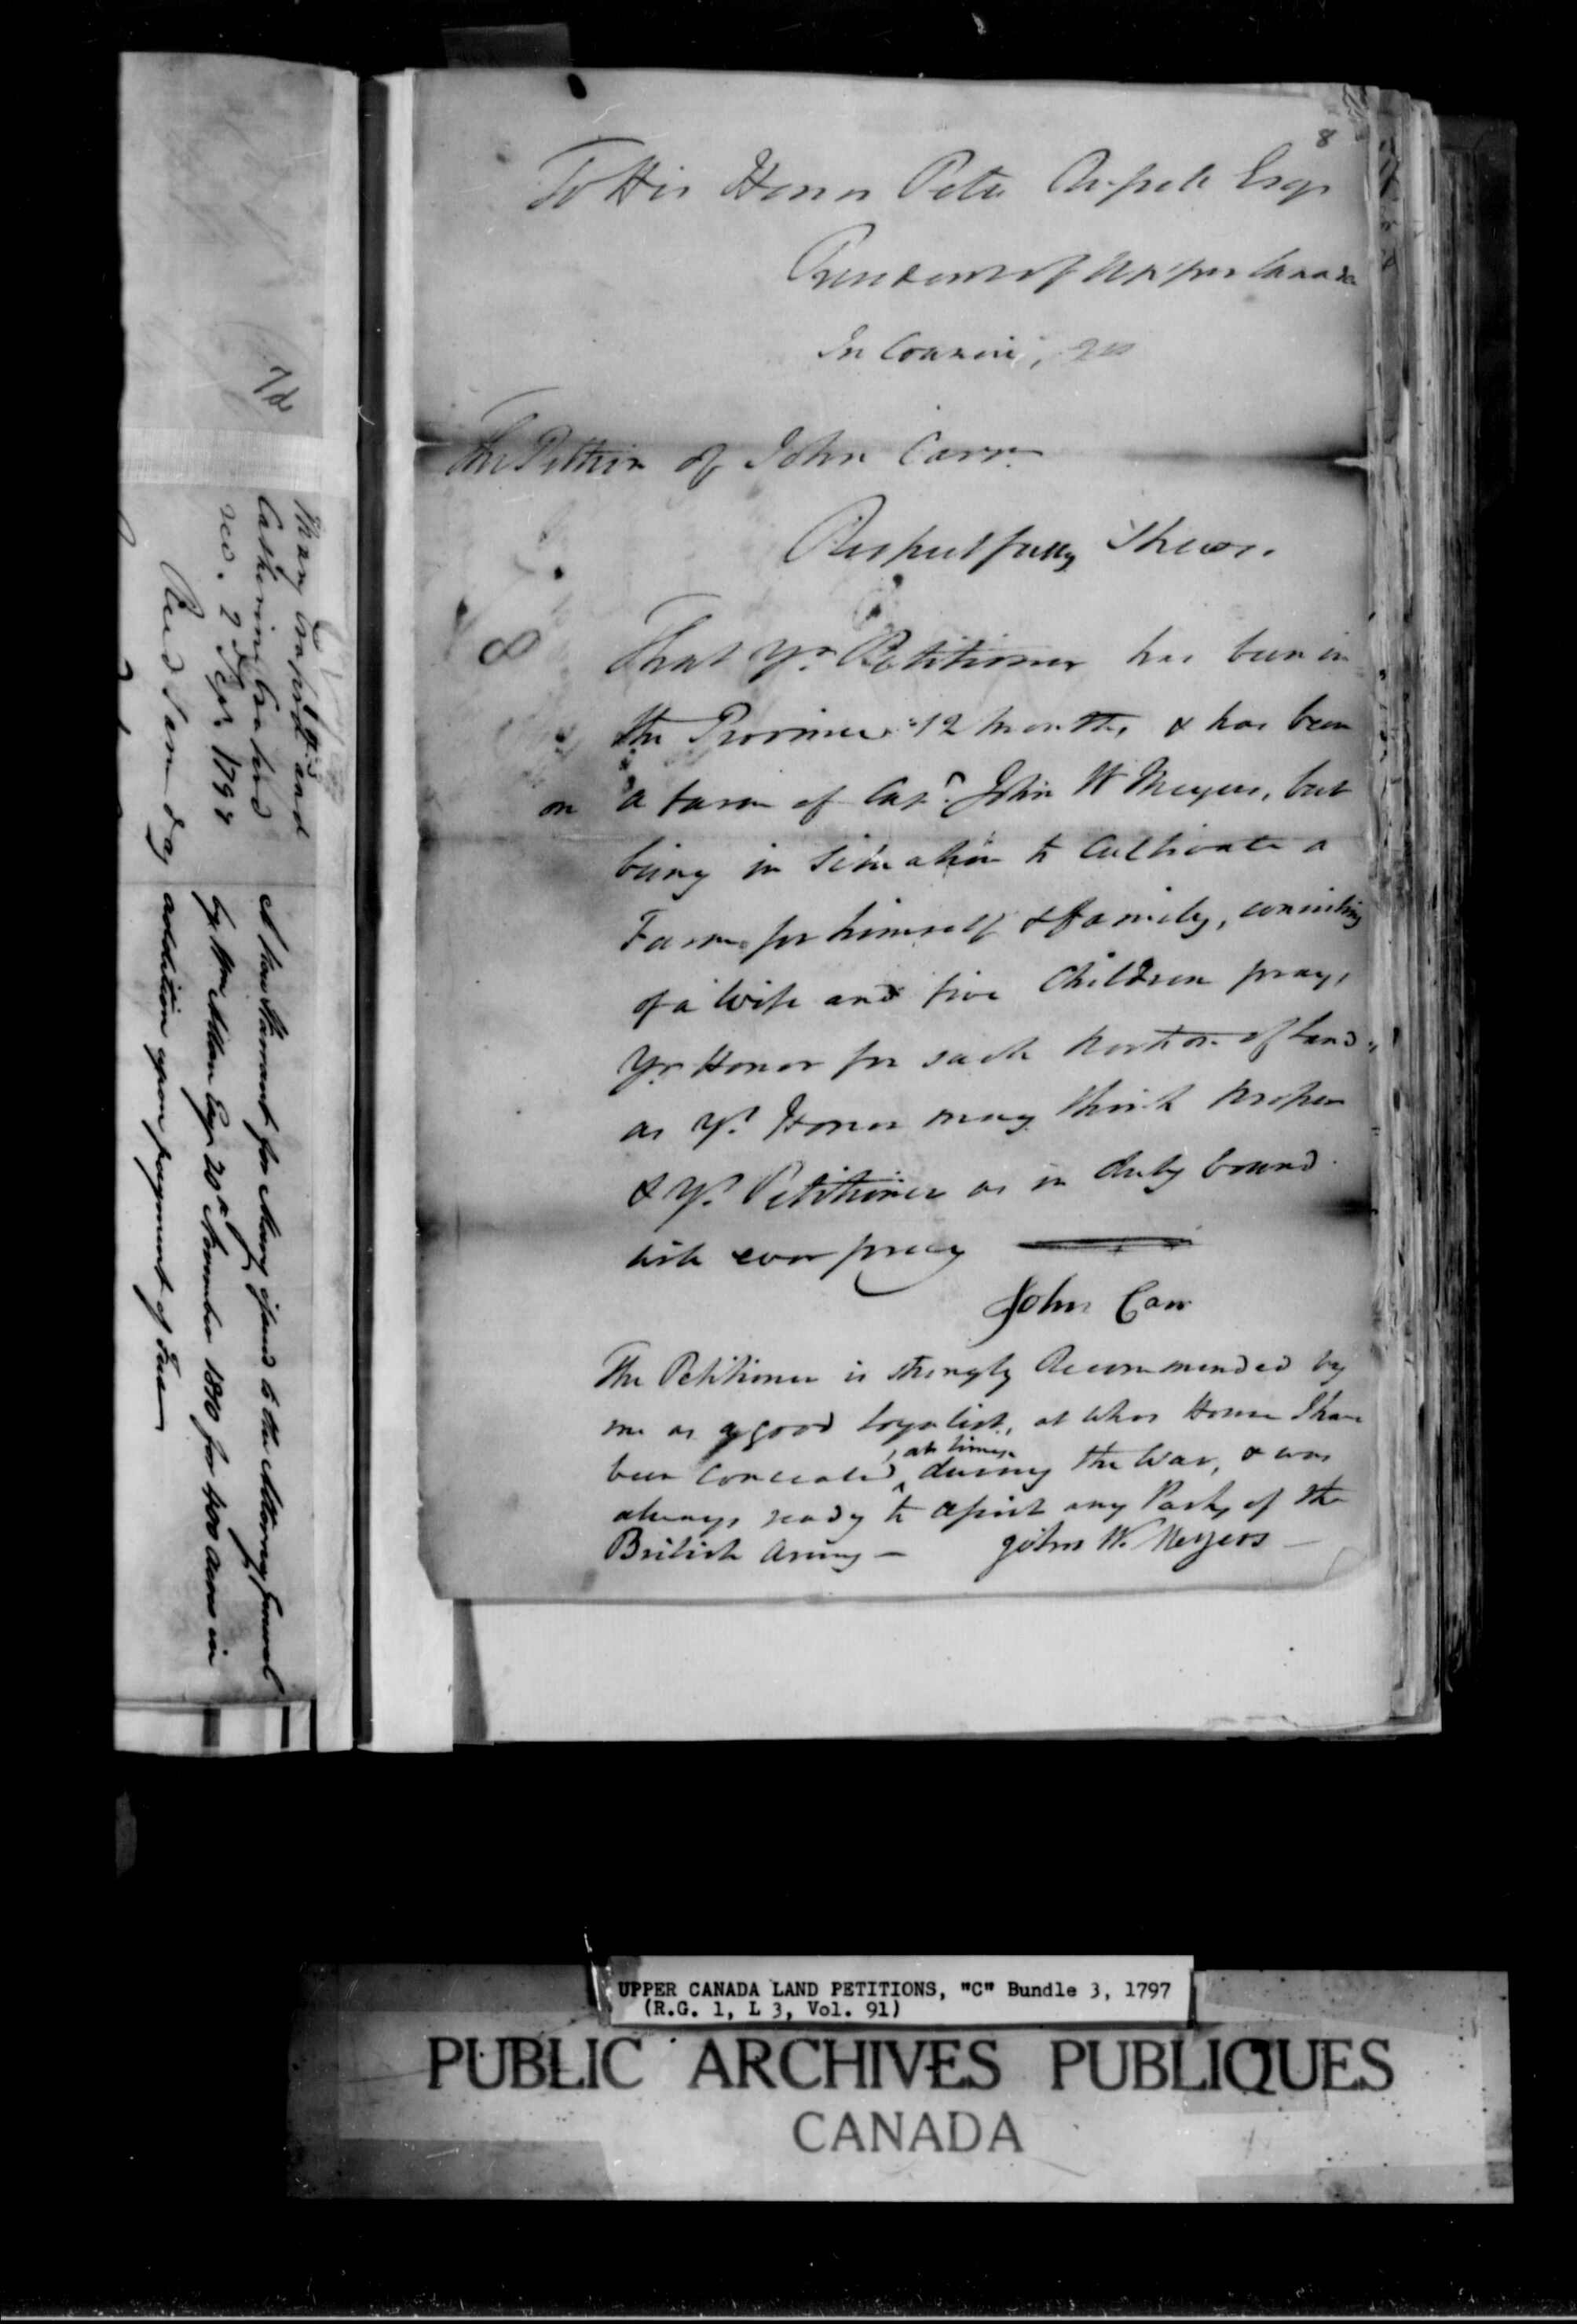 8
To His Honor Peter Russell Esqr
President of Upper Canada
In Council, &c
The Petition of John Carr
Respectfully Shews.
8
That Yr. Petitioner has been in
the Province 12 months, & has been
on a farm of Capt. John W Meyers, but
being in Situation to Cultivate a
Farm for himself & family, consisting
of a Wife and five Children prays
Yr. Honor for such portion of Land,
as Yr. Honor may think proper
& Yr. Petitioner as in duty bound
will ever pray
John Carr
The Petitioner is strongly Recommended by
me as a good loyalist, at whos House I have
been Concealed, at times, during the War, & was
always ready to assist any Party of the
British Army — John W. Meyers —
7d
Mary and
Catherine
rec. 2d Sepr. 1798
Read Same day
A New Warrant for Mary issued to the Attorney General
by Wm Allan Esqr 20th November 1810 for 400 Acres in
addition upon payment of Fees
UPPER CANADA LAND PETITIONS, "C" Bundle 3, 1797
(R.G. 1, L 3, Vol. 91)
PUBLIC ARCHIVES PUBLIQUES
CANADA